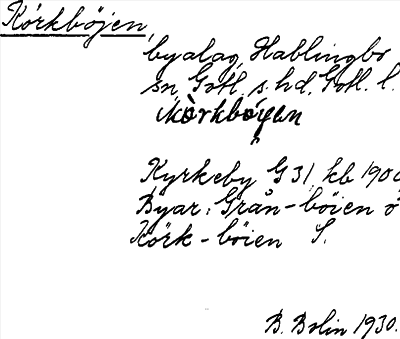 Körkböjen,
byalag, Hablingbo
sn, Gotl. s. hd, Gotl. l.
kòrkbóyen
Kyrkeby G 31 kb 190
Byar: Grån-böien o
Körk-böien S.
B. Bolin 1930.